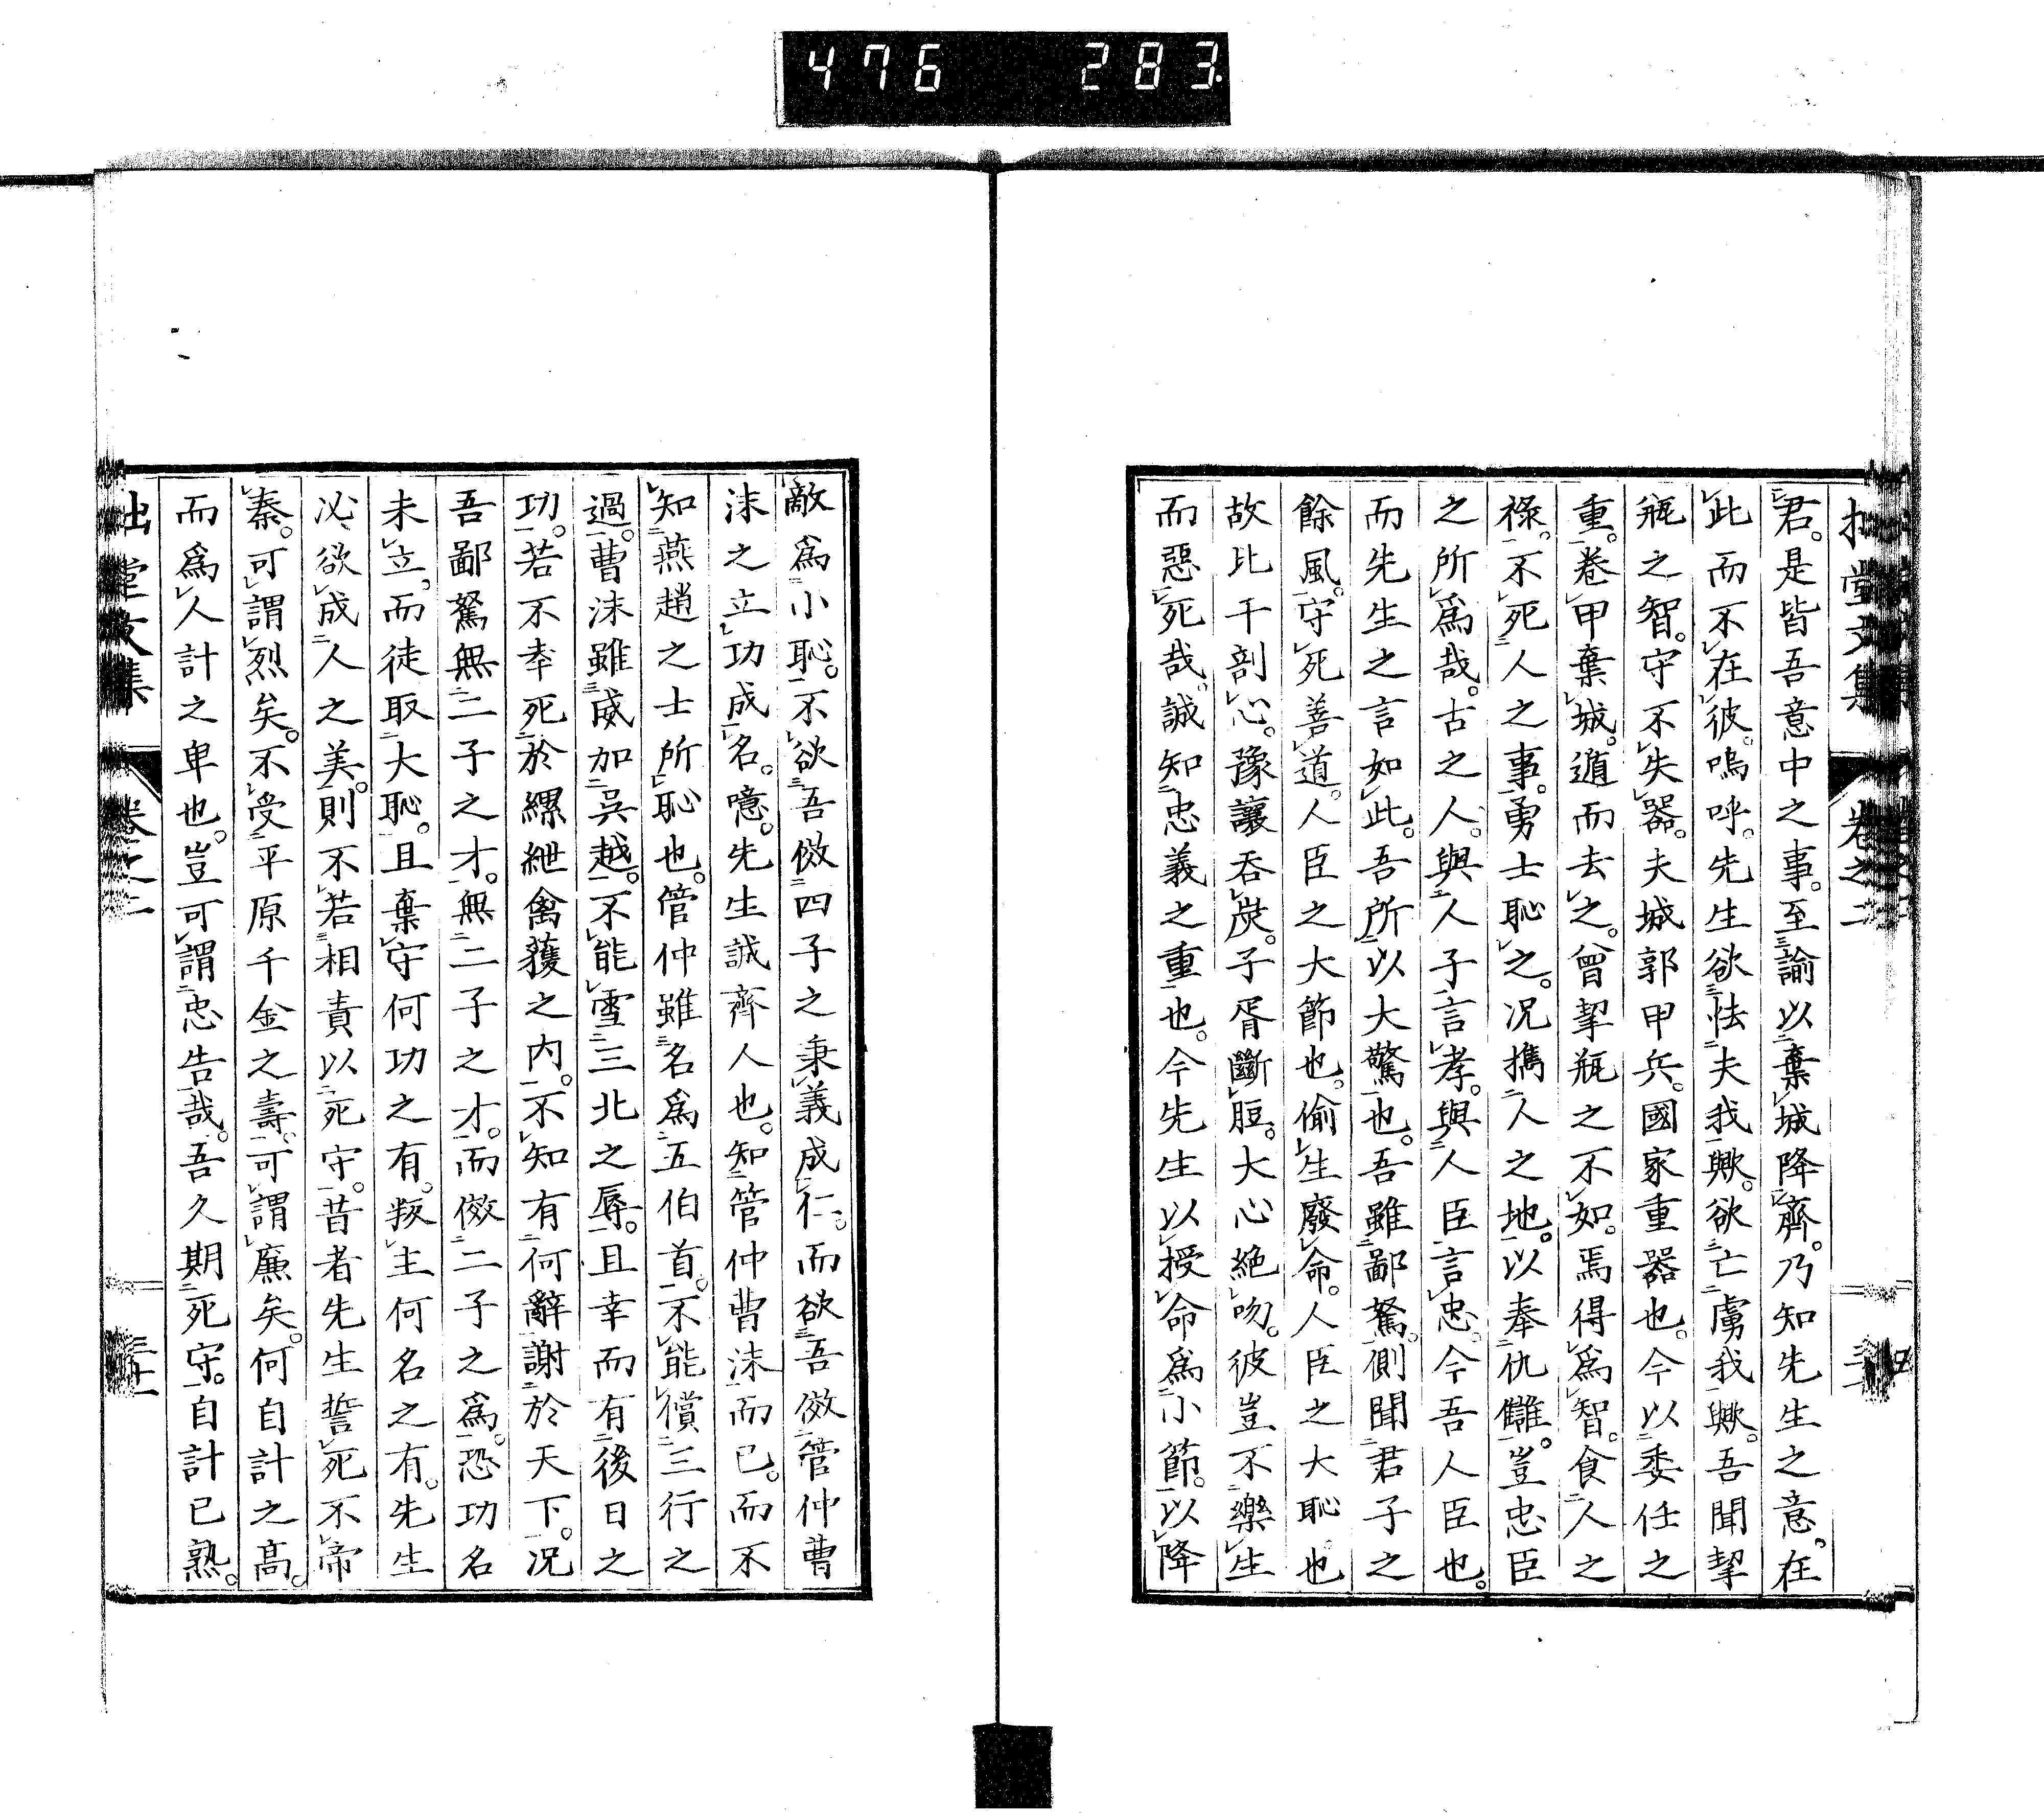 476 283
拙堂文集 卷之二
君。是皆吾意中之事。至諭以棄城降齊。乃知先生之意。在
此而不在彼。嗚呼。先生欲怯夫我歟。欲亡虜我歟。吾聞挈
瓶之智。守不失器。夫城郭甲兵。國家重器也。今以委任之
重。卷甲棄城。遁而去之。曾挈瓶之不如。焉得爲智。食人之
祿。不死人之事。勇士恥之。况擕人之地。以奉仇讎。豈忠臣
之所爲哉。古之人。與人子言孝。與人臣言忠。今吾人臣也。
而先生之言如此。吾所以大驚也。吾雖鄙駑。側聞君子之
餘風。守死善道。人臣之大節也。偷生廢命。人臣之大恥也
故比干剖心。豫讓呑炭。子胥斷脰。大心絕吻。彼豈不樂生
而惡死哉。誠知忠義之重也。今先生以授命爲小節。以降
敵爲小恥。不欲吾傚四子之秉義成仁。而欲吾傚管仲曹
沫之立功成名。噫。先生誠齊人也。知管仲曹沫而已。而不
知燕趙之士所恥也。管仲雖名爲五伯首。不能償三行之
過。曹沫雖威加吳越。不能雪三北之辱。且幸而有後日之
功。若不幸死於縲紲禽獲之内。不知有何辭謝於天下。况
吾鄙駑無二子之才。無二子之才。而傚二子之爲。恐功名
未立。而徒取大恥。且棄守何功之有。叛主何名之有。先生
必欲成人之美。則不若相責以死守。昔者先生誓死不帝
秦。可謂烈矣。不受平原千金之壽。可謂廉矣。何自計之高。
而爲人計之卑也。豈可謂忠告哉。吾久期死守。自計已熟。
拙堂文集 卷之二